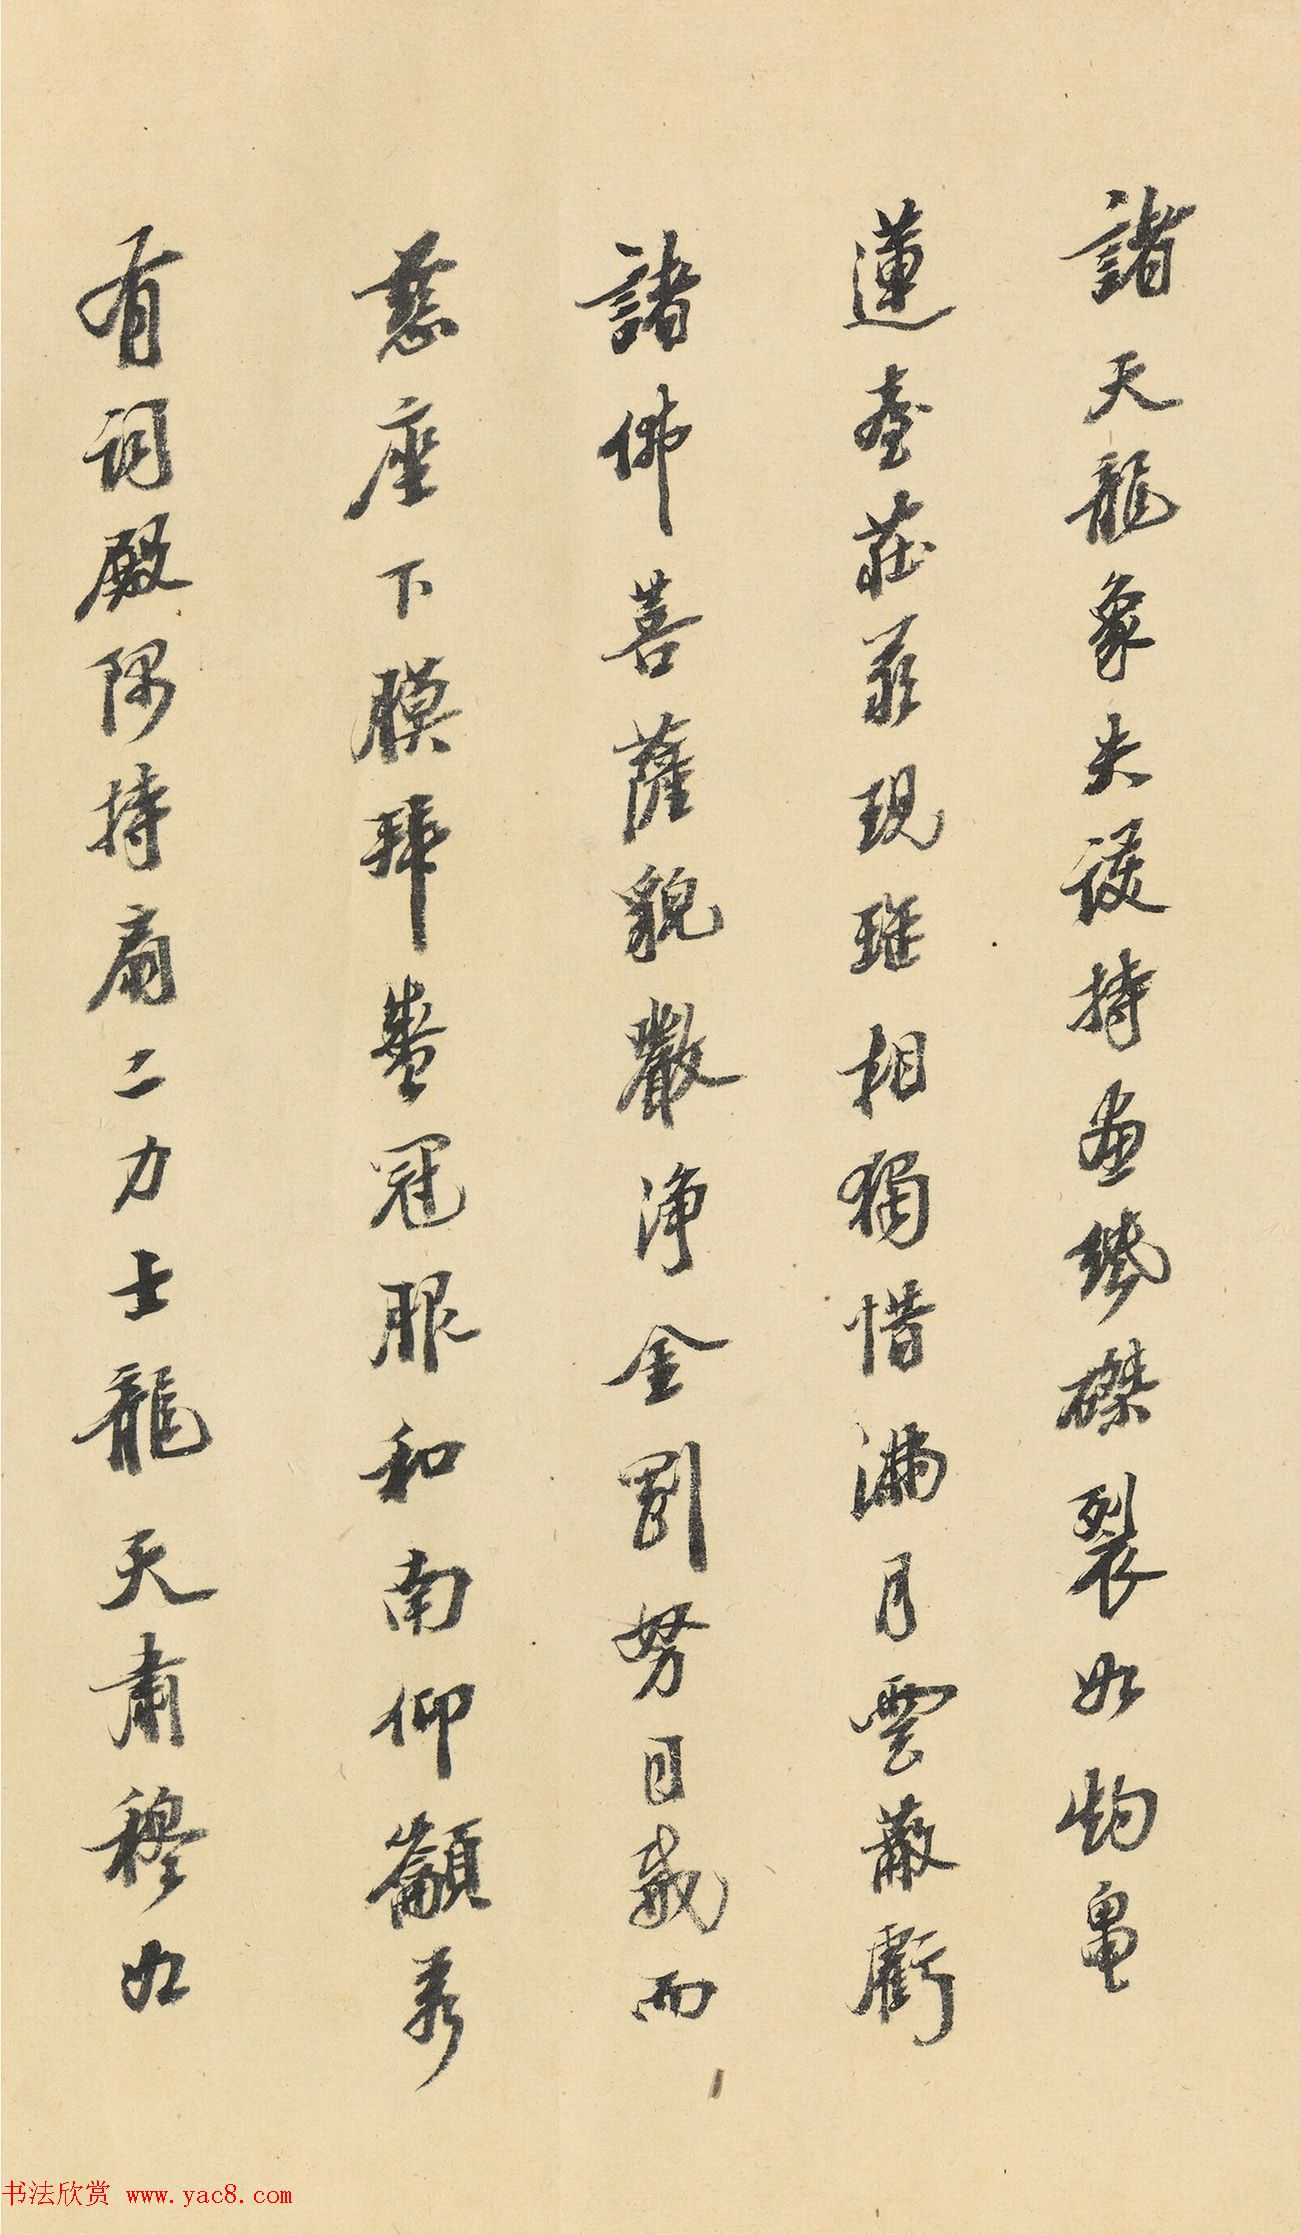 諸天龍象失護持畫絲磔裂如灼龜
蓮臺莊嚴現琁相獨惜滿月雲蔽虧
諸佛菩薩貌嚴淨金剛努目威而
慈座下膜拜盛冠服和南仰籲若
有詞殿隅持扇二力士龍天肅穆如
书法欣赏 www.yac8.com